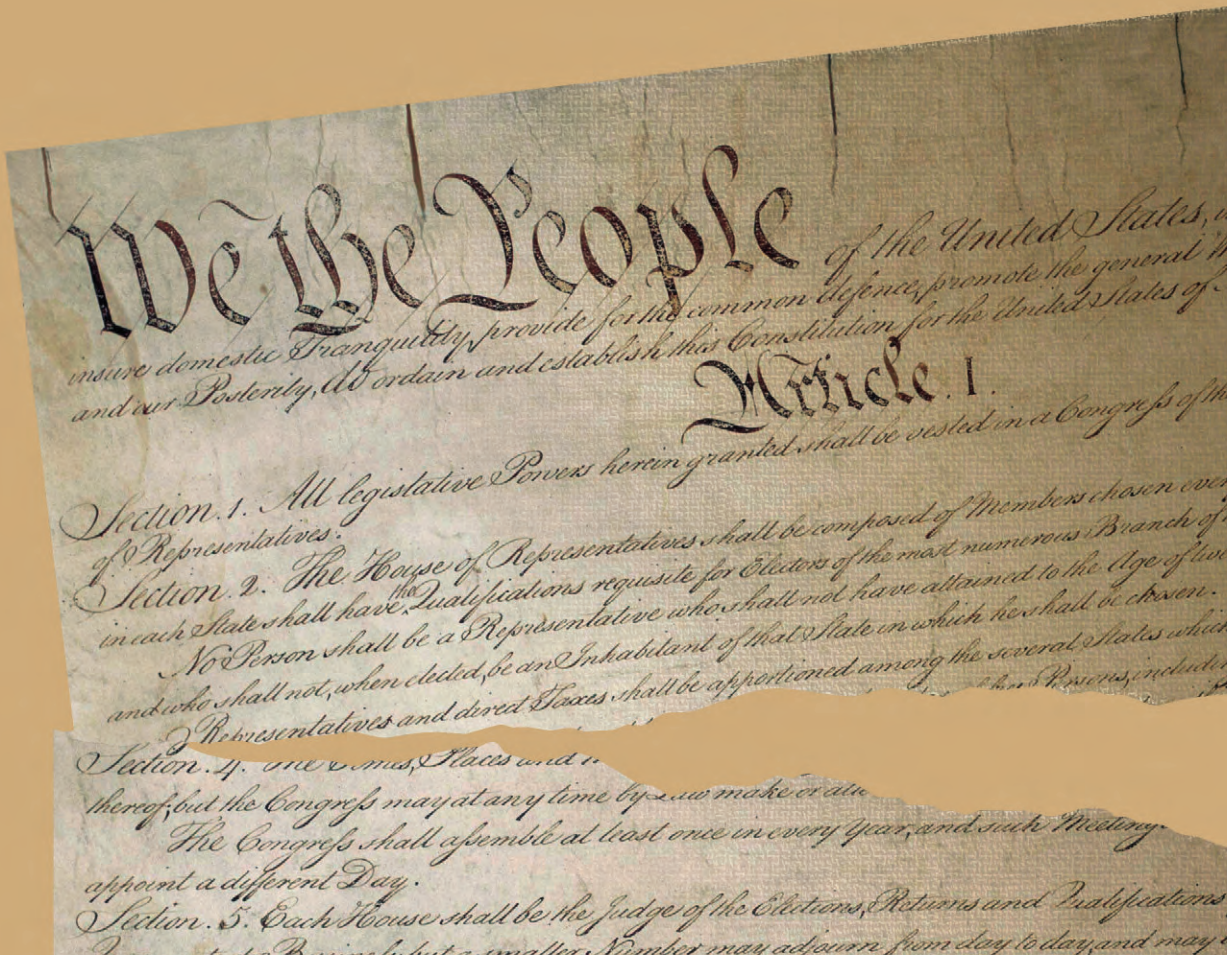 We the People of the United States,
insure domestic Tranquility, provide for the common defence, promote the general
and our Posterity, do ordain and establish this Constitution for the United States of
Article. I.
Section. 1. All legislative Powers herein granted shall be vested in a Congress of the
of Representatives.
Section. 2. The House of Representatives shall be composed of Members chosen every
in each State shall have the Qualifications requisite for Electors of the most numerous Branch of
No Person shall be a Representative who shall not have attained to the Age of
and who shall not, when elected, be an Inhabitant of that State in which he shall be chosen.
Representatives and direct Taxes shall be apportioned among the several States which
Persons, including
Section. 4. The Times, Places and
thereof; but the Congress may at any time by Law make or
The Congress shall assemble at least once in every Year, and such Meeting
appoint a different Day.
Section. 5. Each House shall be the Judge of the Elections, Returns and Qualifications
but a smaller Number may adjourn from day to day, and may